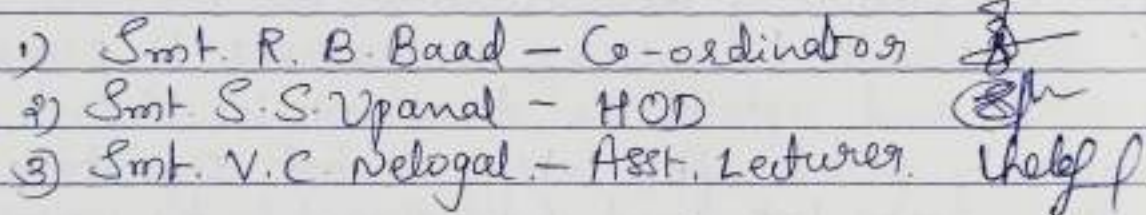 1) Smt. R. B. Baad - Co-ordinator
2) Smt. S. S. Upanal - HOD
3) Smt. V. C. Nelogal. - Asst. Lecturer.